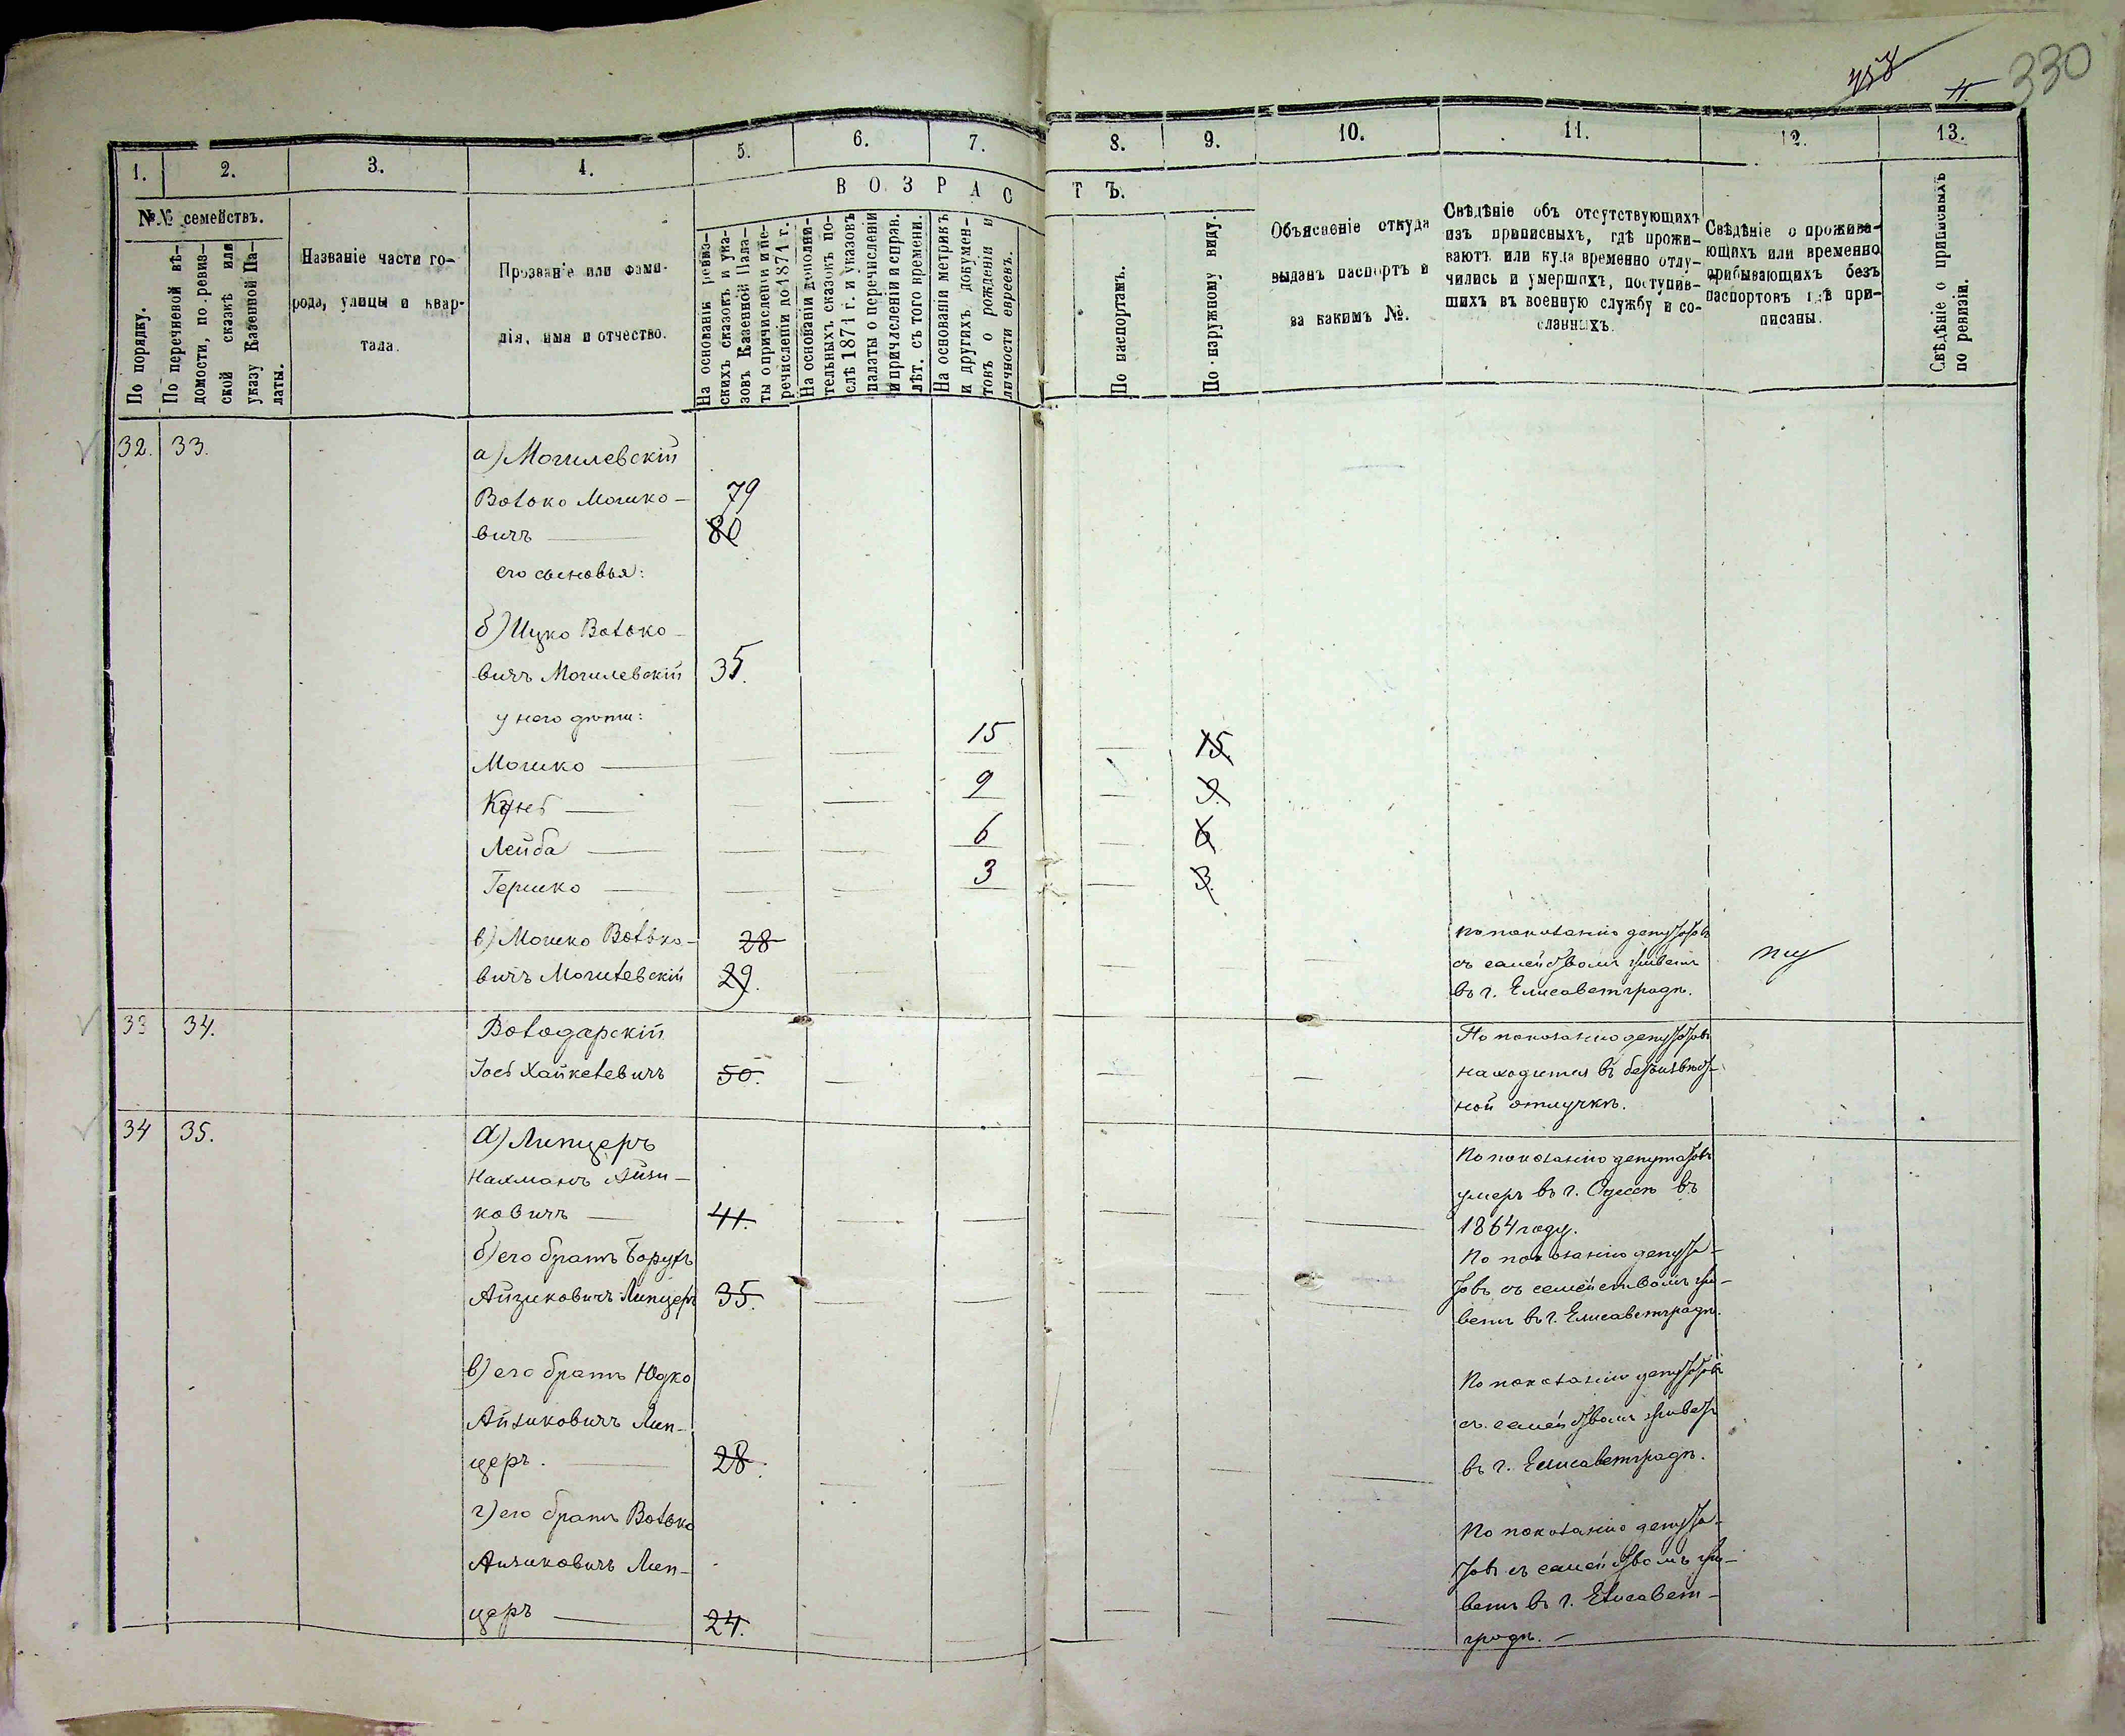 458
11.
330
1. 2. 3. 4. 5. 6. 7. 8. 9. 10. 11. 12. 13.
В О З Р А С Т Ъ.
№№ семействъ.
По порядку.
По перечневой вѣ-
домости, по ревиз-
ской сказкѣ или
указу Казенной Па-
латы.
Названіе части го-
рода, улицы и квар-
тала.
Прозваніе или фами-
лія, имя и отчество.
На основаніи ревиз-
скихъ сказокъ и ука-
зовъ Казенной Пала-
ты о причисленіи и пе-
речисленіи до 1871 г.
На основаніи дополни-
тельныхъ сказокъ по-
слѣ 1871 г. и указовъ
палаты о перечисленіи
и причисленіи и справ.
лѣт. съ того времени.
На основаніи метрикъ
и другихъ докумен-
товъ о рожденіи и
личности евреевъ.
По паспортамъ.
По наружному виду.
Объясненіе откуда
выданъ паспортъ и
за какимъ №.
Свѣдѣніе объ отсутствующихъ
изъ приписныхъ, гдѣ прожи-
ваютъ или куда временно отлу-
чились и умершихъ, поступив-
шихъ въ военную службу и со-
сланныхъ.
Свѣдѣніе о прожива-
ющихъ или временно
прибывающихъ безъ
паспортовъ гдѣ при-
писаны.
Свѣдѣніе о приписныхъ
по ревизіи.
32. 33. а) Могилевскій
Волько Мошко- 79
вичъ 80
его сыновья:
б) Ицко Волько-
вичъ Могилевскій 35.
у него дѣти:
Мошко 15 15.
Кунѣ 9 9.
Лейба 6 6
Гершко 3 3.
в) Мошко Волько- 28
вичъ Могилевскій 29.
по показанію депутатовъ
съ семействомъ живетъ
въ г. Елисаветградѣ.
33 34. Володарскій
Іосѣ Хайкелевичъ 50.
По показанію депутатовъ
находится въ безъизвѣст-
ной отлучкѣ.
34 35. а) Липцеръ
Нахманъ Айзи-
ковичъ 41.
По показанію депутатовъ
умеръ въ г. Одессѣ въ
1864 году.
б) его братъ Борухъ
Айзиковичъ Липцеръ 35.
По показанію депута-
товъ съ семействомъ жи-
ветъ въ г. Елисаветградѣ.
в) его братъ Юдко
Айзиковичъ Лип-
церъ. 28.
По показанію депутатовъ
съ семействомъ живетъ
въ г. Елисаветградѣ.
г) его братъ Волько
Айзиковичъ Лип-
церъ 24.
По показанію депута-
товъ съ семействомъ жи-
ветъ въ г. Елисавет-
градѣ.